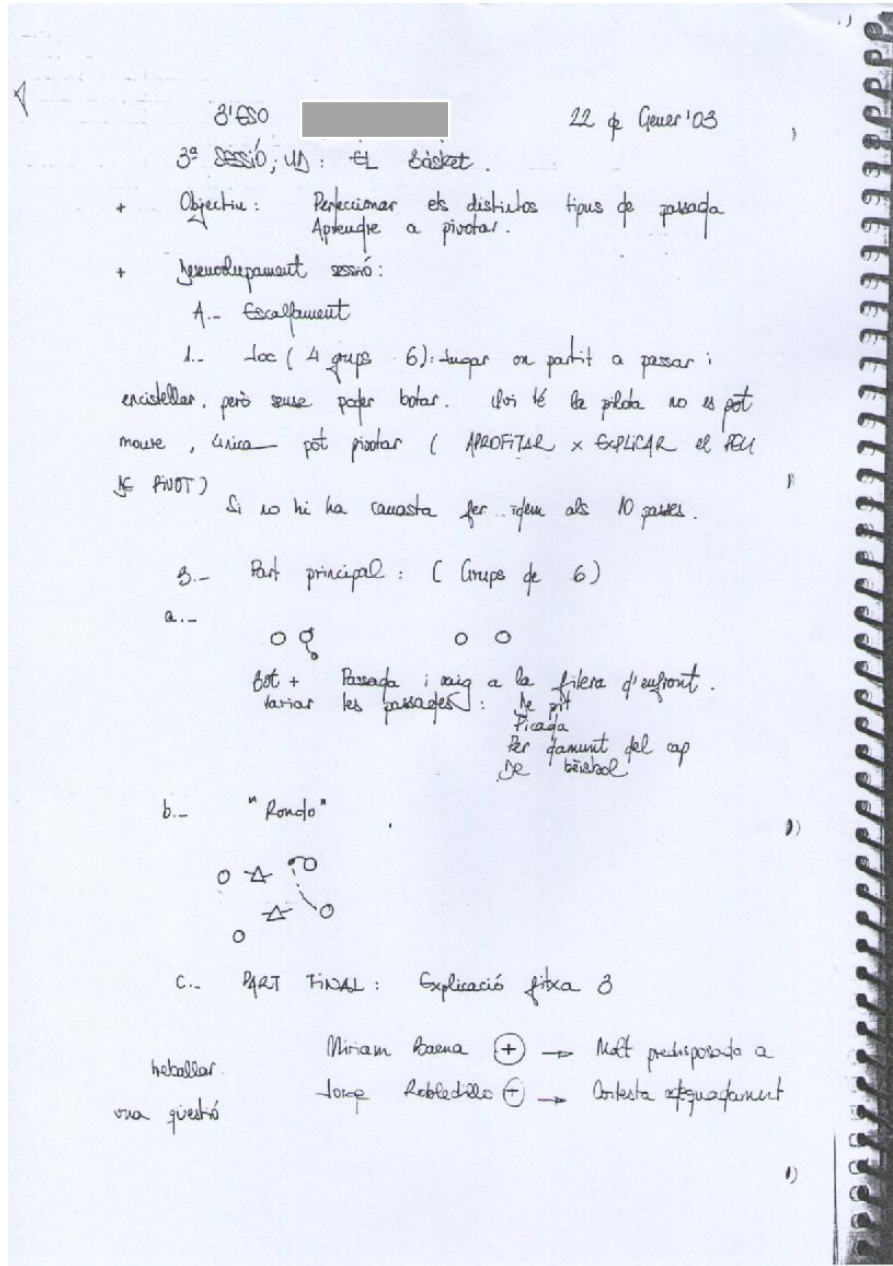 3'ESO 22 de Gener '03
3ª SESSIÓ; UD : EL Bàsket.
+ Objectiu : Perfeccionar els distintos tipus de passada
Aprendre a pivotar.
+ Desenvolupament sessió :
A.- Escalfament
1.- Joc ( 4 grups 6): Jugar un partit a passar i
encistellar, però sense poder botar. Qui té la pilota no es pot
moure , única pot pivotar ( APROFITAR x EXPLICAR el PEU
DE PIVOT)
Si no hi ha canasta fer idem als 10 passes.
B.- Part principal : ( Grups de 6)
a.-
Bot + Passada i vaig a la filera d'enfront.
Variar les passades : De pit
Picada
Per damunt del cap
De bèisbol
b.- "Rondo"
C.- PART FINAL : Explicació fitxa 3
Miriam Baena + → Molt predisposada a
treballar.
Jorge Robledillo + → Contesta adequadament
una questió